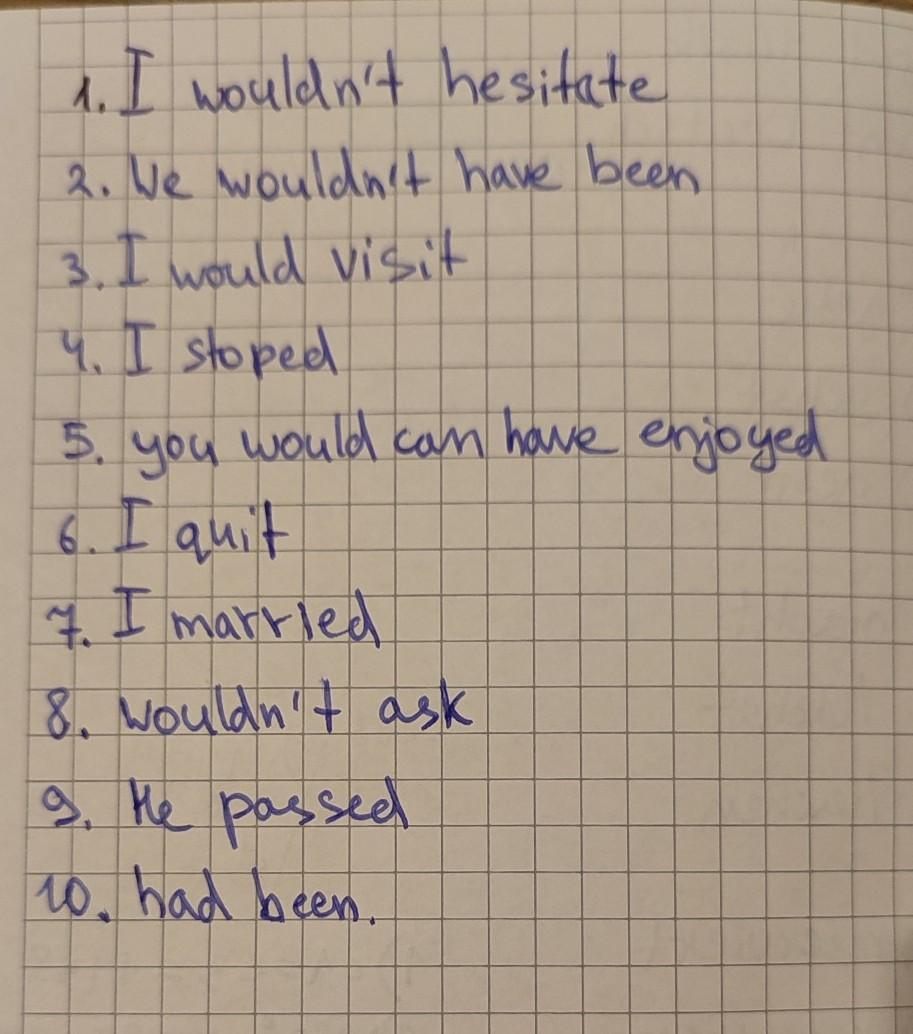 1. I wouldn't hesitate
2. We wouldn't have been
3. I would visit
4. I stoped
5. you would can have enjoyed
6. I quit
7. I married
8. wouldn't ask
9. He passed
10. had been.